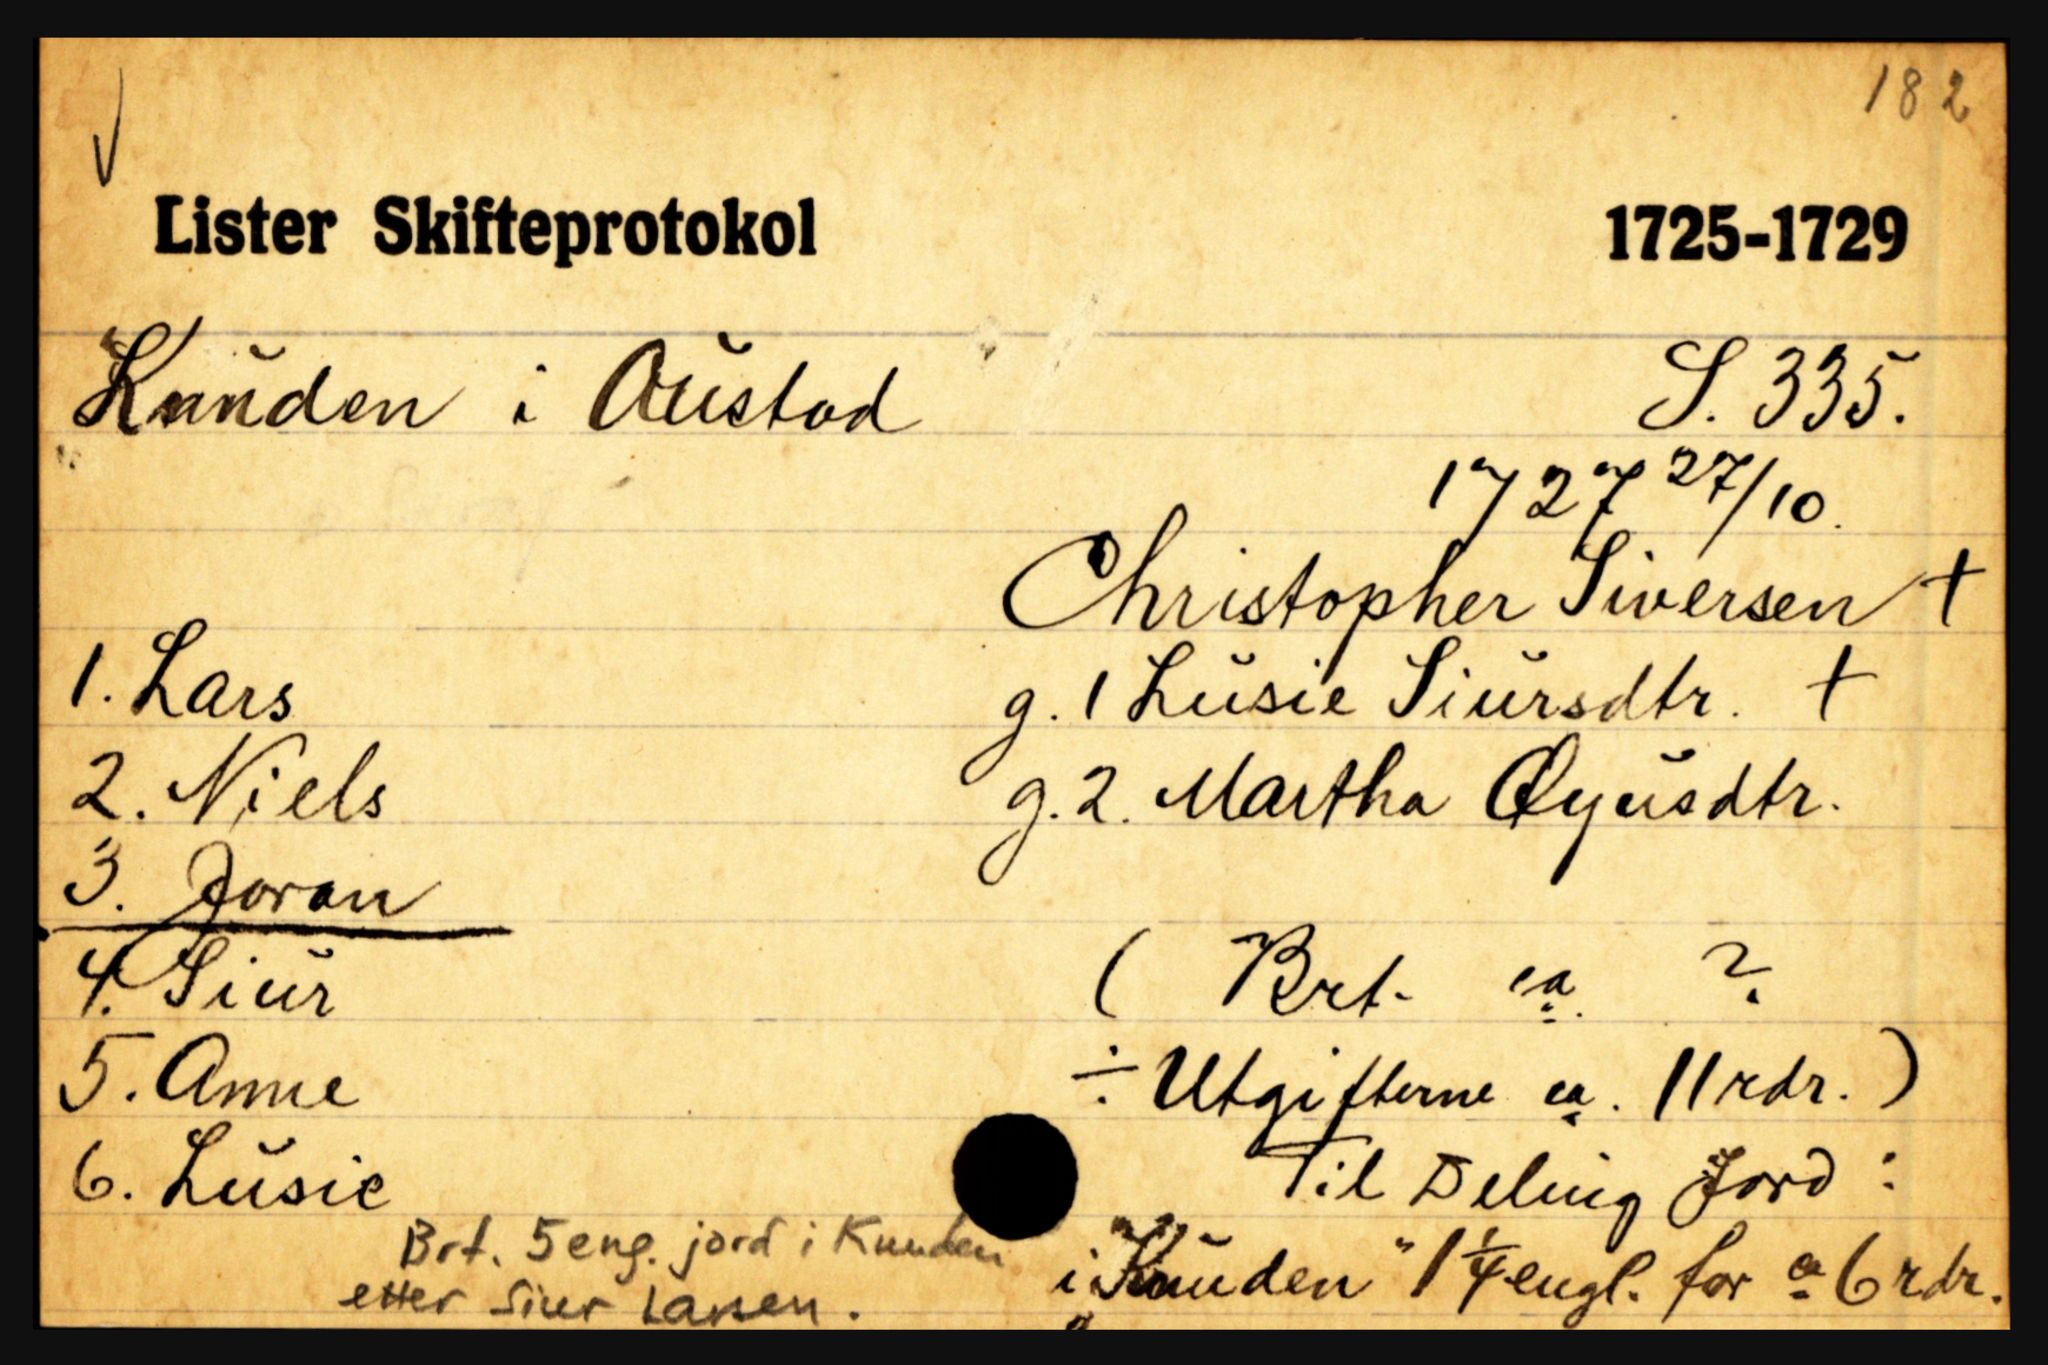 182
Lister Skifteprotokol 1725-1729
Knuden i Austad S. 335.
1727 27/10.
Christopher Siversen †
1. Lars g. 1 Lusie Siursdtr. †
2. Niels g. 2. Martha Øyusdtr.
3. Joran
4. Siur ( Brt. ca. ?
5. Anne ÷ Utgifterne ca. 11 rdr. )
6. Lusie Til Deling Jord :
Brt. 5 eng. jord i Knuden
i "Knuden" 1 1/4 engl. for a 6 rdr.
etter Siur Larsen.